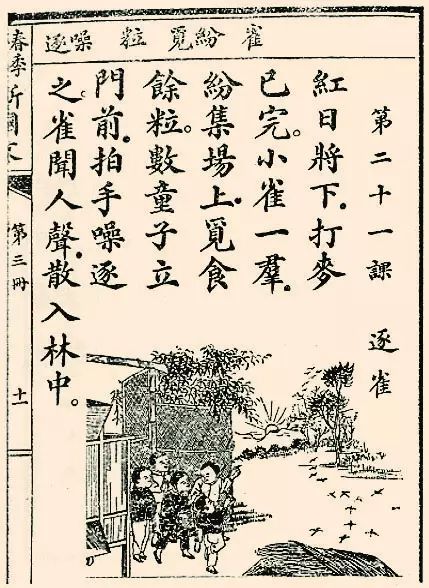 雀 紛 覓 粒 噪 逐
第二十一課 逐雀
紅日將下、打麥
已完。小雀一羣、
紛集場上、覓食
餘粒。數童子立
門前、拍手噪逐
之。雀聞人聲、散入林中。
春季新國文
第三冊
十一